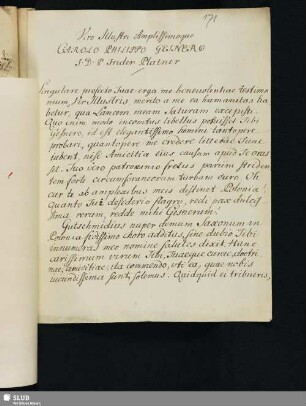 171
Viro Illustri Amplissimoque
CAROLO PHILIPPO GESNERO
S. D. P. Frider Platner
Singulare profecto Tuae erga me benevolentiae testimo
nium, Vir Illustris merito a me ea humanitas ha
betur, qua Lancem meam Saturam excepisti.
Quo enim modo inconditus libellus potuisset Tibi
Gesnero, id est elegantissimo homini tantopere
probari, quantopere me credere litterae Tuae
iubent, nisi Amicitia eius causam apud Te oras
set. Tuo vero patrocinio fretus parum striden
tem forte circumforaneorum turbam curo. Oh
cur Te ab amplexibus meis destinet Polonia!
Quanto Tui desiderio flagro, redi pax dulcis
sima, rerum, redde mihi Gesnerum!
Gutschmidius nuper domum Saxonum in
Polonia fidissimo choro additus, sine dubio Tibi
innumeras meo nomine salutes dixit. Hunc
carissimum virum Tibi, Tuaeque curae, doctri
nae, amicitiae, ita commendo, uti ea, quae nobis
iucundissima sunt, solemus. Quidquid ei tribueris,
SLUB